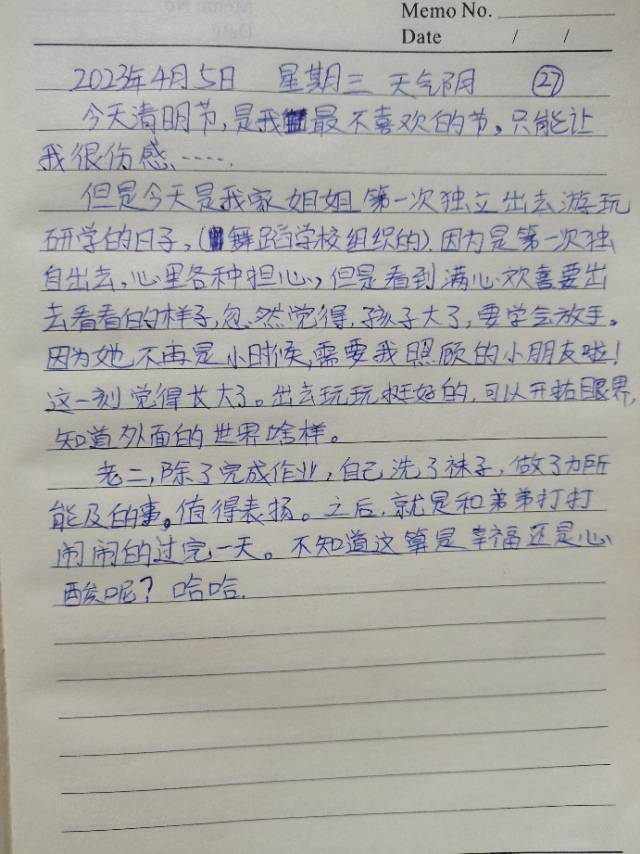 Memo No.
Date / /
2023年4月5日 星期三 天气阴 ㉗
今天清明节,是我最不喜欢的节,只能让
我很伤感、……
但是今天是我家姐姐第一次独立出去游玩
研学的日子,(舞蹈学校组织的)因为是第一次独
自出去,心里各种担心,但是看到满心欢喜要出
去看看的样子,忽然觉得,孩子大了,要学会放手。
因为她不再是小时候,需要我照顾的小朋友啦!
这一刻觉得长大了。出去玩玩挺好的,可以开拓眼界,
知道外面的世界啥样。
老二,除了完成作业,自己洗了袜子,做了力所
能及的事。值得表扬。之后,就是和弟弟打打
闹闹的过完一天。不知道这算是幸福还是心
酸呢?哈哈.